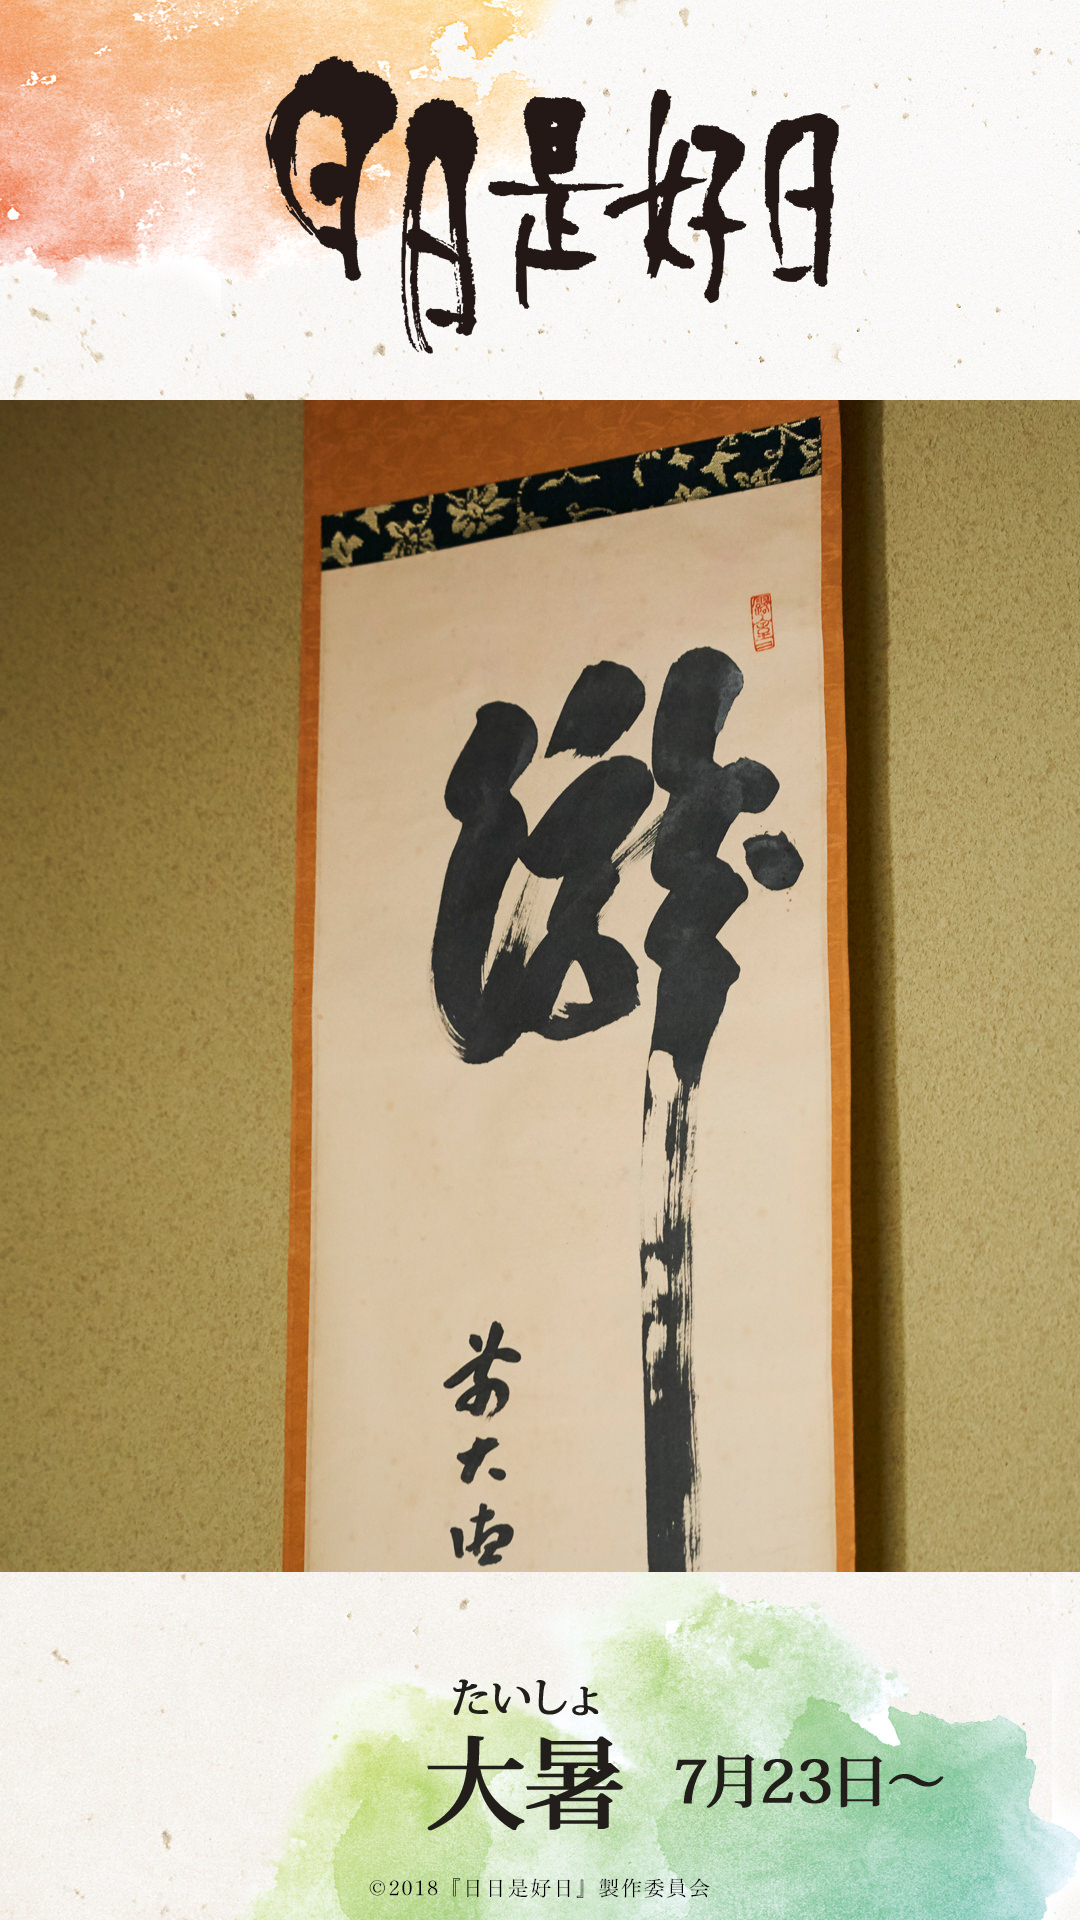 日日是好日
瀧
前大徳
たいしょ
大暑 7月23日～
©2018『日日是好日』製作委員会